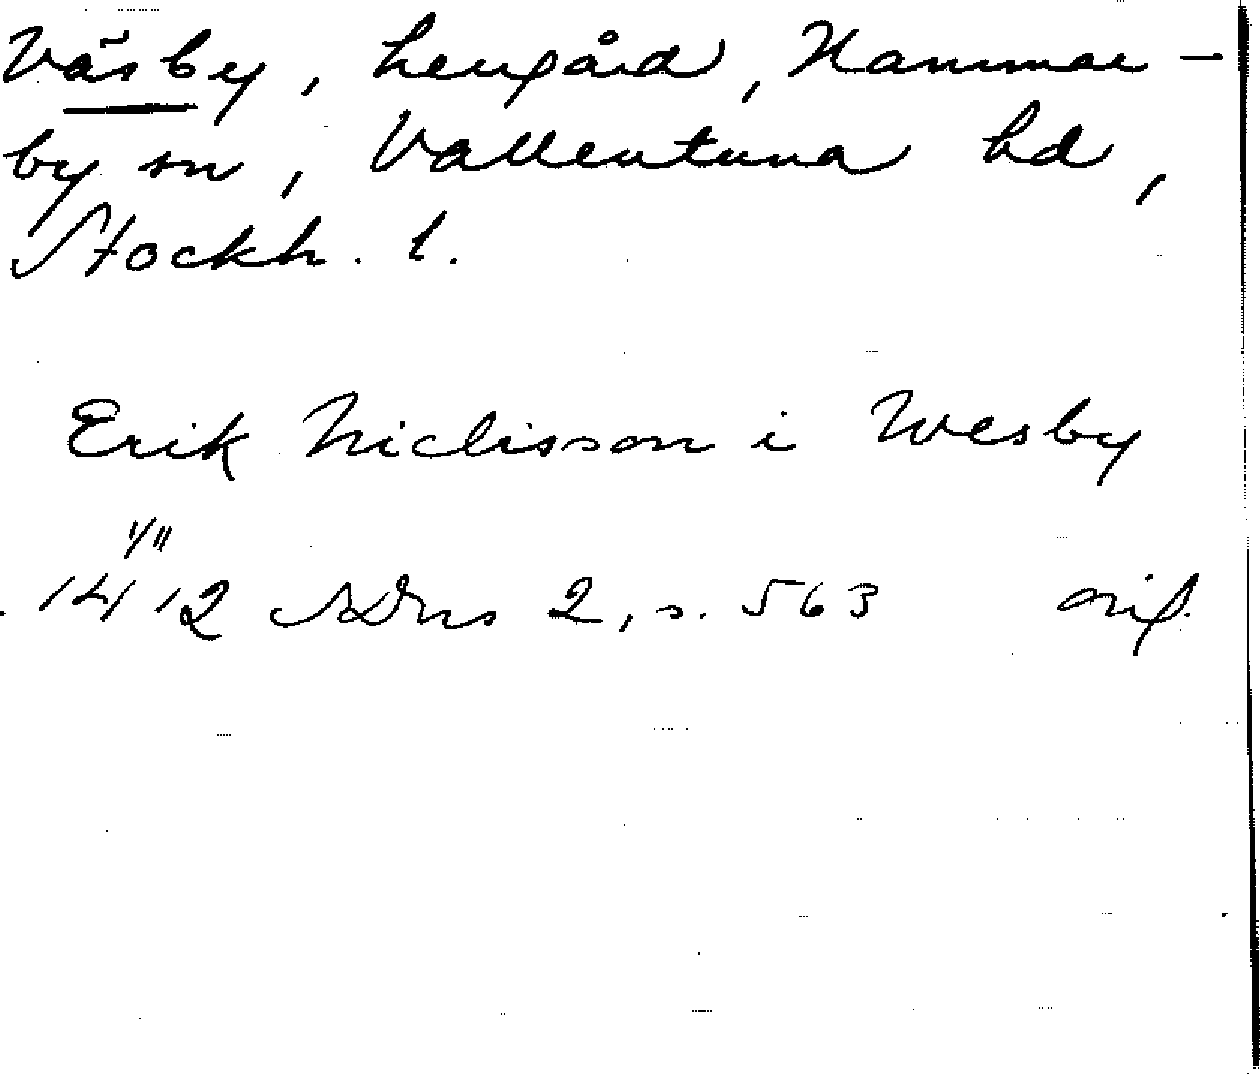 Väsby, herrgård, Hammar-
by sn, Vallentuna hd,
Stockh. l.
Erik Niclisson i Wesby
1/11
1412 SDns 2, s. 563 orig.